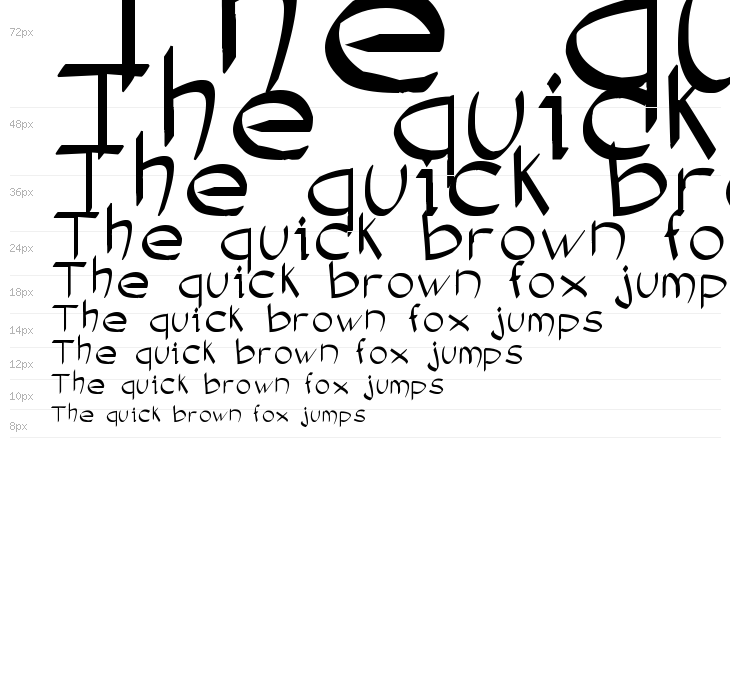 72px The qu
48px The quick
36px The quick br
24px The quick brown fo
18px The quick brown fox jump
14px The quick brown fox jumps
12px The quick brown fox jumps
10px The quick brown fox jumps
8px The quick brown fox jumps